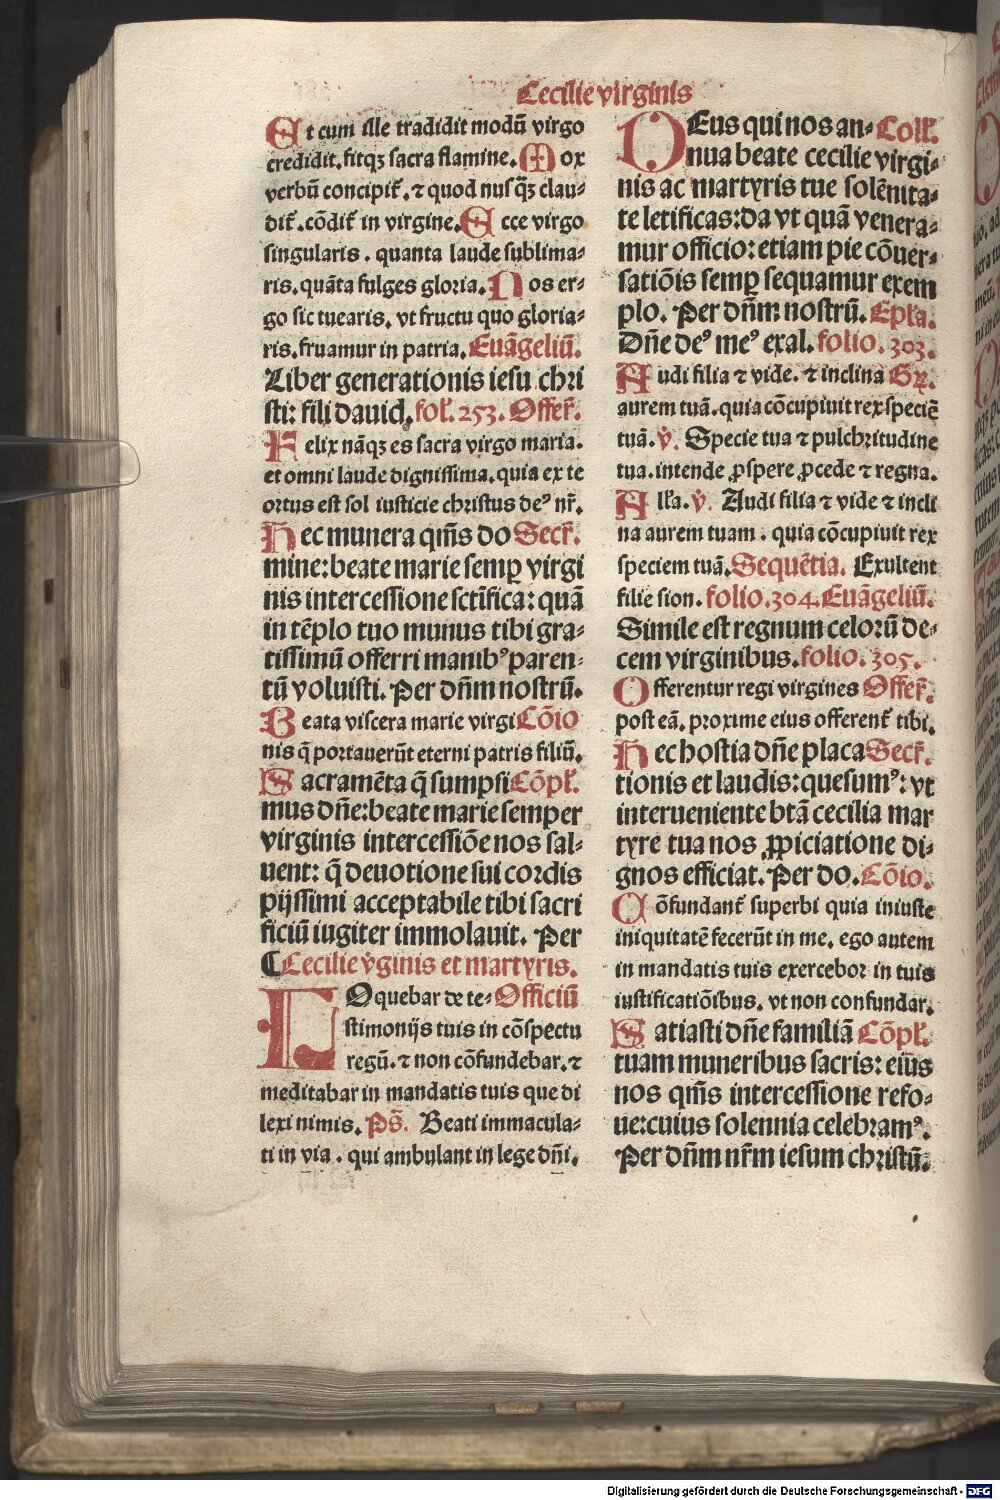 Cecilie virginis
Et cum ille tradidit modū virgo
credidit. fitqꝫ sacra flamine. Mox
verbū concipit̄. ⁊ quod nusq̄ꝫ clau⸗
dit̄. cōdit̄ in virgine. Ecce virgo
singularis. quanta laude sublima⸗
ris. quāta fulges gloria. Nos er⸗
go sic tuearis. vt fructu quo gloria⸗
ris. fruamur in patria. Euāgeliū.
Liber generationis iesu chri
sti: fili dauid. fol̄. 253. Offer̄.
Felix nāqꝫ es sacra virgo maria.
et omni laude dignissima. quia ex te
ortus est sol iusticie christus deꝰ nr̄.
Hec munera qm̄s do Secr̄.
mine: beate marie semꝑ virgi
nis intercessione sctīfica: quā
in tēplo tuo munus tibi gra⸗
tissimū offerri manibꝰ paren⸗
tū voluisti. Per dn̄m nostrū.
Beata viscera marie virgi Cōio
nis q̄ portauerūt eterni patris filiū.
Sacramēta q̄ sumpsi Cōpl̄.
mus dn̄e: beate marie semper
virginis intercessiōe nos sal⸗
uent: q̄ deuotione sui cordis
pijssimi acceptabile tibi sacri
ficiū iugiter immolauit. Per
¶ Cecilie v̊ginis et martyris.
LOquebar de te⸗ Officiū
stimonijs tuis in cōspectu
regū. ⁊ non cōfundebar. ⁊
meditabar in mandatis tuis que di
lexi nimis. Ps̄. Beati immacula⸗
ti in via. qui ambulant in lege dn̄i.
DEus qui nos an⸗ Coll̄.
nua beate cecilie virgi⸗
nis ac martyris tue solēnita⸗
te letificas: da vt quā venera⸗
mur officio: etiam pie cōuer⸗
satiōis semꝑ sequamur exem
plo. Per dn̄m nostrū. Epl̄a.
Dn̄e deꝰ meꝰ exal. folio. 303.
Audi filia ⁊ vide. ⁊ inclina Gr̄.
aurem tuā. quia cōcupiuit rex speciē
tuā. v̊. Specie tua ⁊ pulchritudine
tua. intende ꝓspere ꝓcede ⁊ regna.
All̄a. v̊. Audi filia ⁊ vide ⁊ incli
na aurem tuam. quia cōcupiuit rex
speciem tuā. Sequētia. Exultent
filie sion. folio. 304. Euāgeliū.
Simile est regnum celorū de⸗
cem virginibus. folio. 305.
Offerentur regi virgines Offer̄.
post eā. proxime eius offerent̄ tibi.
Hec hostia dn̄e placa Secr̄.
tionis et laudis: quesumꝰ: vt
interueniente btā cecilia mar
tyre tua nos ꝓpiciatione di⸗
gnos efficiat. Per do. Cōio.
Cōfundant̄ superbi quia iniuste
iniquitatē fecerūt in me. ego autem
in mandatis tuis exercebor in tuis
iustificatiōibus. vt non confundar.
Satiasti dn̄e familiā Cōpl̄.
tuam muneribus sacris: eius
nos qm̄s intercessione refo⸗
ue: cuius solennia celebramꝰ.
Per dn̄m nr̄m iesum christū.
Digitalisierung gefördert durch die Deutsche Forschungsgemeinschaft - DFG